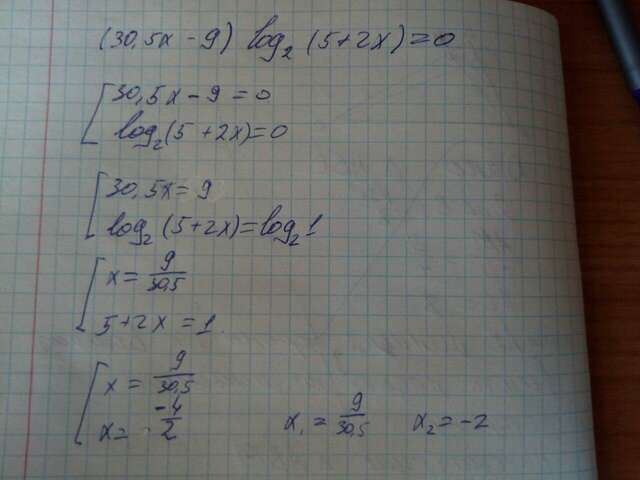 (30,5x - 9) log₂ (5+2x) = 0
[ 30,5x - 9 = 0
log₂(5 + 2x) = 0
[ 30,5x = 9
log₂ (5+2x) = log₂ 1
[ x = 9/30,5
5+2x = 1
[ x = 9/30,5
x = -4/2
x₁ = 9/30,5 x₂ = -2